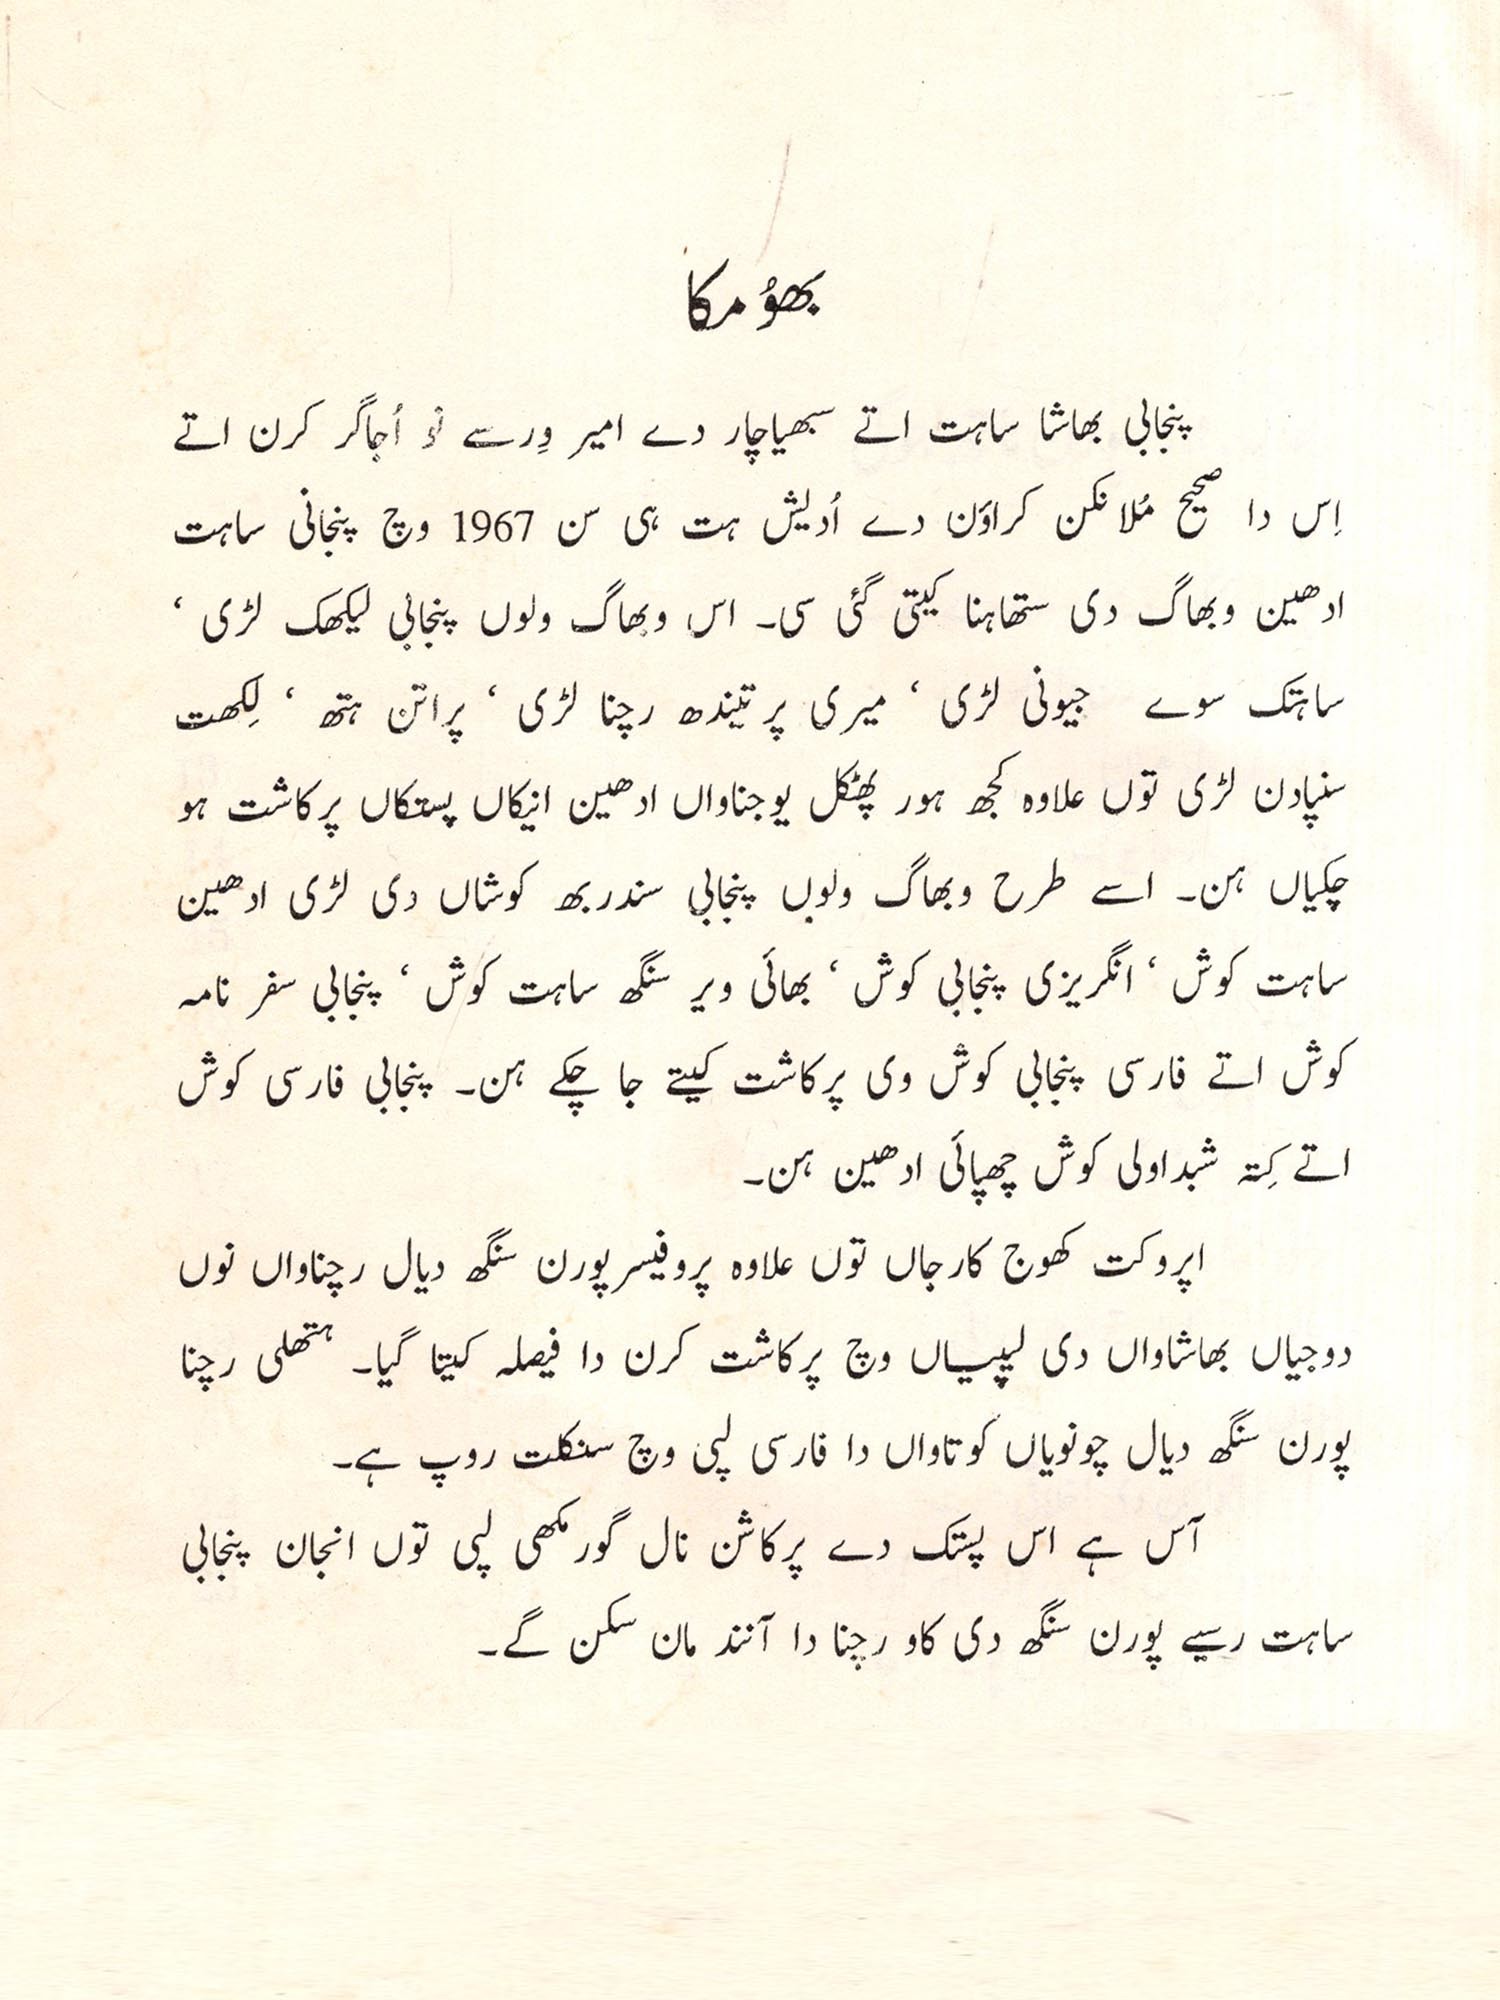 بھوُمکا
پنجابی بھاشا ساہت اتے سبھیاچار دے امیر وِرسے نوُ اُجاگر کرن اتے
اِس دا صحیح مُلانکن کراؤن دے اُدیش ہت ہی سن 1967 وچ پنجابی ساہت
ادھین وبھاگ دی ستھاہنا کیتی گئی سی۔ اس وبھاگ ولوں پنجابی لیکھک لڑی ‘
ساہتک سوے جیونی لڑی ‘ میری پرتیندھ رچنا لڑی ‘ پراتن ہتھ ‘ لِکھت
سنپادن لڑی توں علاوہ کجھ ہور پھٹکل یوجناواں ادھین انیکاں پستکاں پرکاشت ہو
چکیاں ہن۔ اسے طرح وبھاگ ولوں پنجابی سندربھ کوشاں دی لڑی ادھین
ساہت کوش ‘ انگریزی پنجابی کوش ‘ بھائی ویر سنگھ ساہت کوش ‘ پنجابی سفر نامہ
کوش اتے فارسی پنجابی کوش وی پرکاشت کیتے جا چکے ہن۔ پنجابی فارسی کوش
اتے کِتہ شبداولی کوش چھپائی ادھین ہن۔
اپروکت کھوج کارجاں توں علاوہ پروفیسر پورن سنگھ دیال رچناواں نوں
دوجیاں بھاشاواں دی لیپیاں وچ پرکاشت کرن دا فیصلہ کیتا گیا۔ ہتھلی رچنا
پورن سنگھ دیال چونویاں کوتاواں دا فارسی لپی وچ سنکلت روپ ہے۔
آس ہے اس پستک دے پرکاشن نال گورمکھی لپی توں انجان پنجابی
ساہت رسیے پورن سنگھ دی کاو رچنا دا آنند مان سکن گے۔